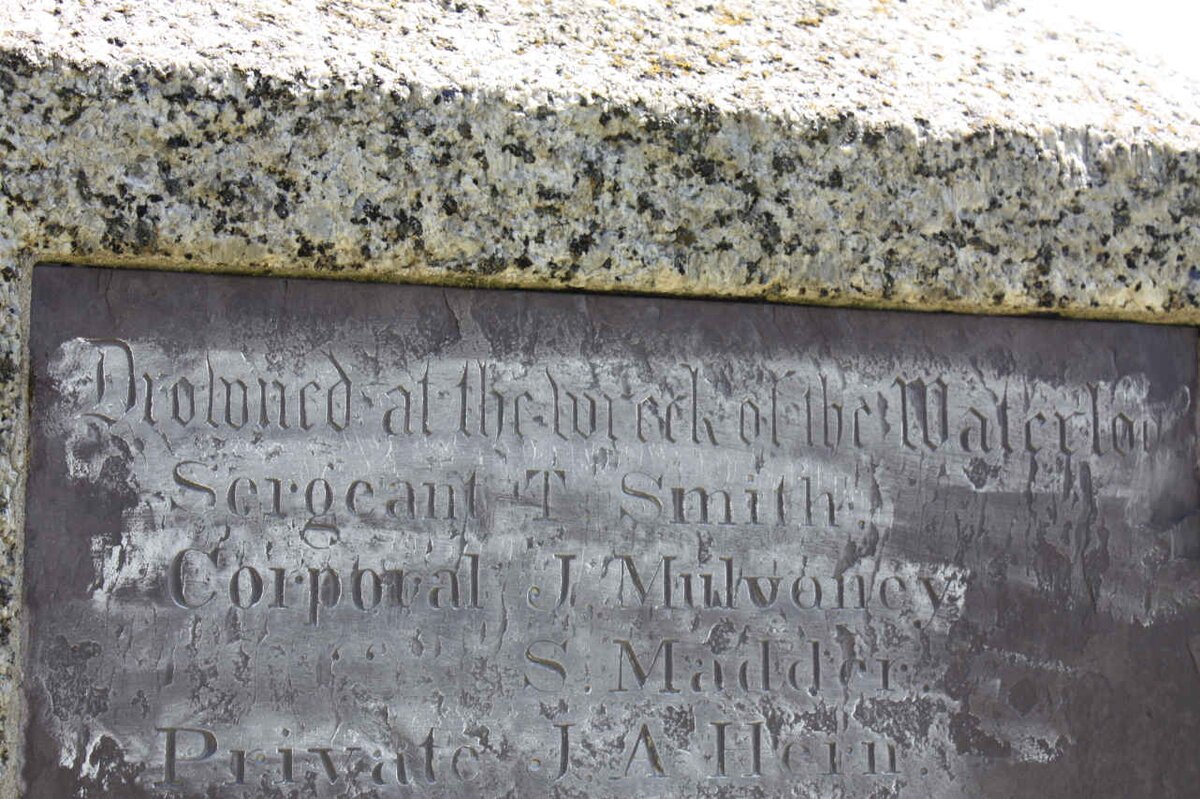 Drowned at the wreck of the Waterloo
Sergeant T. Smith.
Corporal J. Mulvoney
" " S. Madder.
Private J. A Hern.